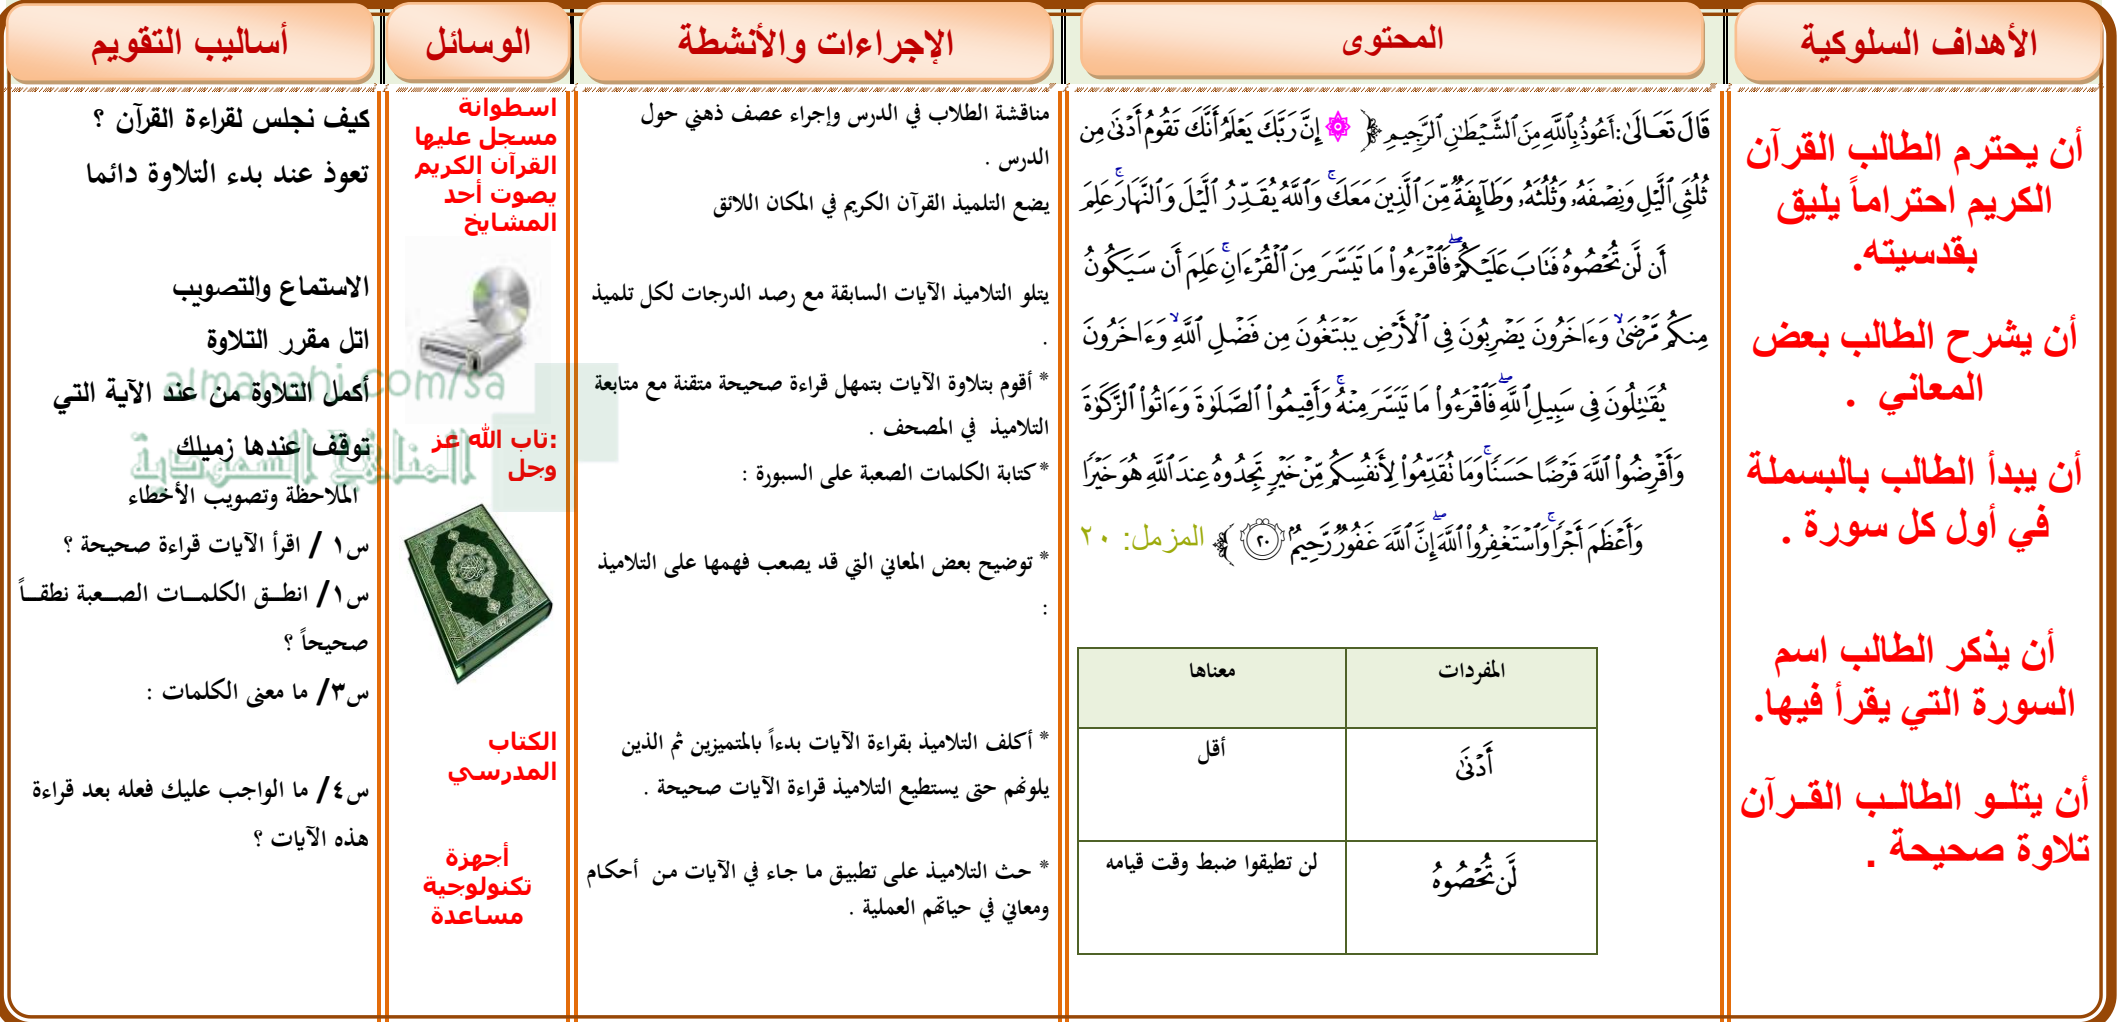 الأهداف السلوكية
المحتوى
الإجراءات والأنشطة
الوسائل
أساليب التقويم
أن يحترم الطالب القرآن
الكريم احتراماً يليق
بقدسيته.
أن يشرح الطالب بعض
المعاني .
أن يبدأ الطالب بالبسملة
في أول كل سورة .
أن يذكر الطالب اسم
السورة التي يقرأ فيها.
أن يتلو الطالب القرآن
تلاوة صحيحة .
قَالَ تَعَالَىٰ: أَعُوذُ بِٱللَّهِ مِنَ ٱلشَّيْطَٰنِ ٱلرَّجِيمِ ﴿ ۞ إِنَّ رَبَّكَ يَعْلَمُ أَنَّكَ تَقُومُ أَدْنَىٰ مِن
ثُلُثَيِ ٱلَّيْلِ وَنِصْفَهُۥ وَثُلُثَهُۥ وَطَآئِفَةٌ مِّنَ ٱلَّذِينَ مَعَكَ ۚ وَٱللَّهُ يُقَدِّرُ ٱلَّيْلَ وَٱلنَّهَارَ ۚ عَلِمَ
أَن لَّن تُحْصُوهُ فَتَابَ عَلَيْكُمْ ۖ فَٱقْرَءُوا۟ مَا تَيَسَّرَ مِنَ ٱلْقُرْءَانِ ۚ عَلِمَ أَن سَيَكُونُ
مِنكُم مَّرْضَىٰ ۙ وَءَاخَرُونَ يَضْرِبُونَ فِى ٱلْأَرْضِ يَبْتَغُونَ مِن فَضْلِ ٱللَّهِ ۙ وَءَاخَرُونَ
يُقَٰتِلُونَ فِى سَبِيلِ ٱللَّهِ ۖ فَٱقْرَءُوا۟ مَا تَيَسَّرَ مِنْهُ ۚ وَأَقِيمُوا۟ ٱلصَّلَوٰةَ وَءَاتُوا۟ ٱلزَّكَوٰةَ
وَأَقْرِضُوا۟ ٱللَّهَ قَرْضًا حَسَنًا ۚ وَمَا تُقَدِّمُوا۟ لِأَنفُسِكُم مِّنْ خَيْرٍ تَجِدُوهُ عِندَ ٱللَّهِ هُوَ خَيْرًا
وَأَعْظَمَ أَجْرًا ۚ وَٱسْتَغْفِرُوا۟ ٱللَّهَ ۖ إِنَّ ٱللَّهَ غَفُورٌ رَّحِيمٌۢ ﴿٢٠﴾ ﴾ المزمل: ٢٠
المفردات
معناها
أَدْنَىٰ
أقل
لَّن تُحْصُوهُ
لن تطيقوا ضبط وقت قيامه
مناقشة الطلاب في الدرس وإجراء عصف ذهني حول
الدرس .
يضع التلميذ القرآن الكريم في المكان اللائق
يتلو التلاميذ الآيات السابقة مع رصد الدرجات لكل تلميذ
.
* أقوم بتلاوة الآيات بتمهل قراءة صحيحة متقنة مع متابعة
التلاميذ في المصحف .
* كتابة الكلمات الصعبة على السبورة :
* توضيح بعض المعاني التي قد يصعب فهمها على التلاميذ
:
* أكلف التلاميذ بقراءة الآيات بدءاً بالمتميزين ثم الذين
يلونهم حتى يستطيع التلاميذ قراءة الآيات صحيحة .
* حث التلاميذ على تطبيق ما جاء في الآيات من أحكام
ومعاني في حياتهم العملية .
اسطوانة
مسجل عليها
القرآن الكريم
بصوت أحد
المشايخ
:تاب الله عز
وجل
الكتاب
المدرسي
أجهزة
تكنولوجية
مساعدة
كيف نجلس لقراءة القرآن ؟
تعوذ عند بدء التلاوة دائما
الاستماع والتصويب
اتل مقرر التلاوة
أكمل التلاوة من عند الآية التي
توقف عندها زميلك
الملاحظة وتصويب الأخطاء
س١ / اقرأ الآيات قراءة صحيحة ؟
س١/ انطق الكلمات الصعبة نطقاً
صحيحاً ؟
س٣/ ما معنى الكلمات :
س٤/ ما الواجب عليك فعله بعد قراءة
هذه الآيات ؟
almanahj.com/sa
المناهج السعودية